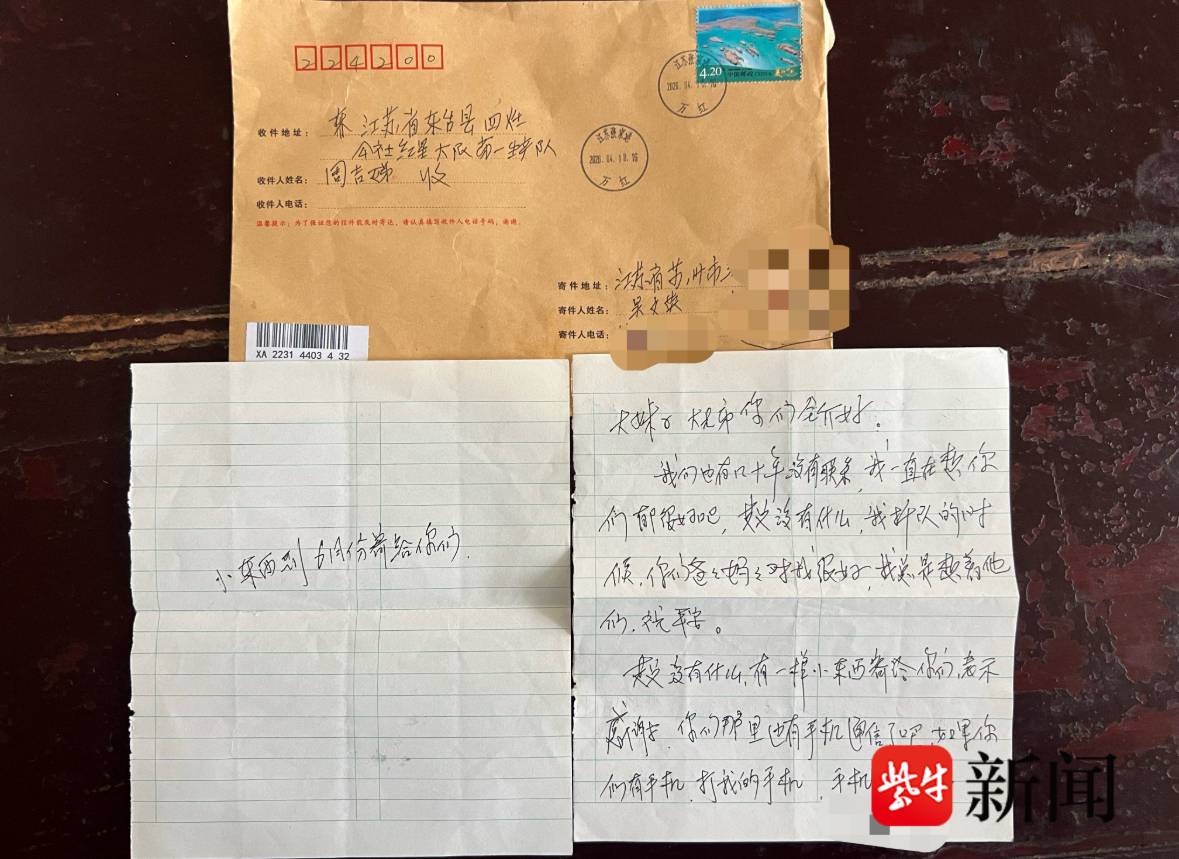 224200
4.20 中国邮政 CHINA
2026.04.18.16
万红
收件地址: 江苏省东台县四灶
公社红星大队第一生产队
2026.04.18.16
万红
收件人姓名: 周吉娣 收
收件人电话:
温馨提示:为了保证您的挂件能及时寄达,请认真填写收件人电话号码,谢谢。
寄件地址: 江苏省苏州市
寄件人姓名: 吴文英
寄件人电话:
XA 2231 4403 4 32
小东西到5月份寄给你们.
大妹子 大兄弟你们全家好。
我们也有几十年没有联系,我一直在想你
们都很好吧,其它没有什么,我插队的时
候,你们爸爸妈妈对我很好,我总是想着他
们,祝平安。
其它没有什么,有一样小东西寄给你们,表示
感谢,你们那里也有手机通信了吧,如果你
们有手机,打我的手机,手机
紫牛 新闻